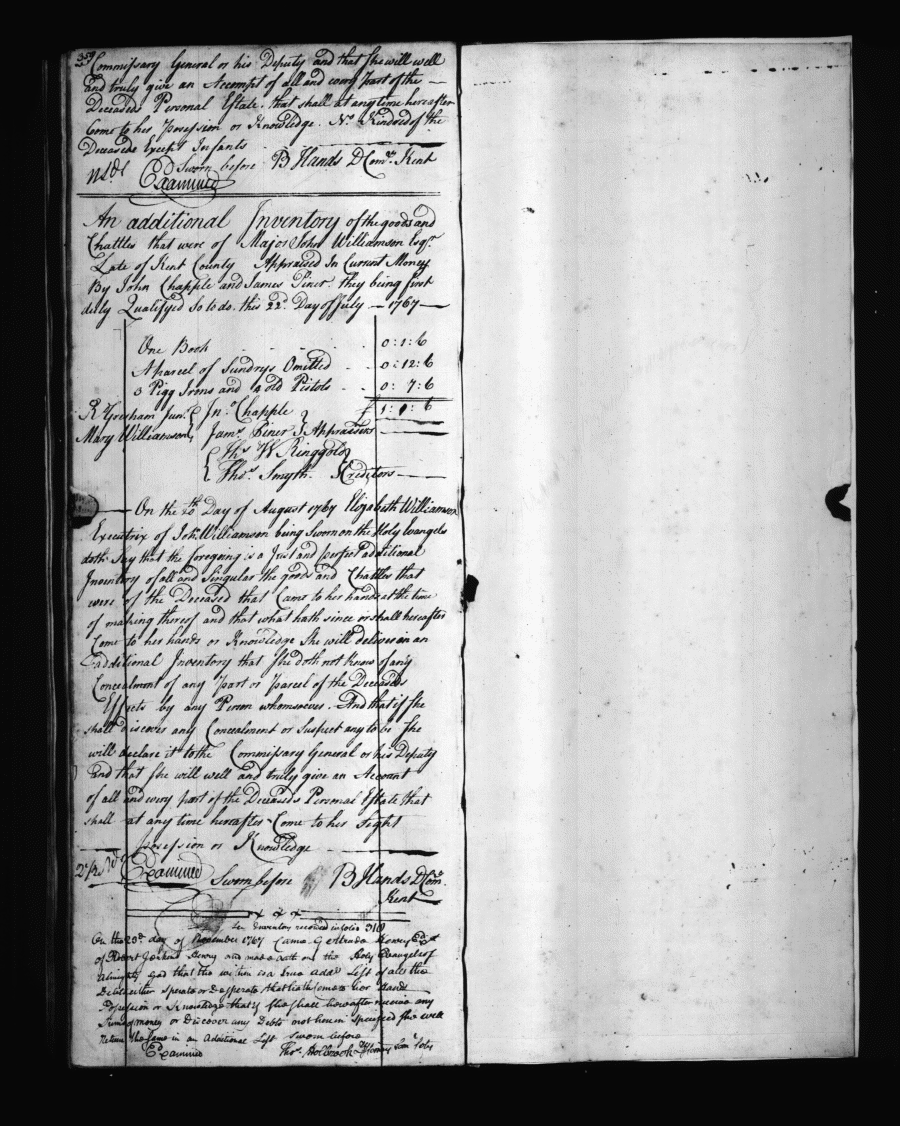 359
Commissary General or his Deputy and that she will well
and truly give an Accompt of all and every Part of the
Deceaseds Personal Estate that shall at any time hereafter
Come to her Possession or Knowledge. No Kindred of the
Deceased Except Infants
Sworn before B Hands D Comr. Kent
Examined
An additional Inventory of the goods and
Chattles that were of Major John Williamson Esqr.
Late of Kent County Appraised In Current Money
By John Chapple and James Piner they being first
duly Qualifyed so to do this 22d. Day of July 1767
One Book 0:1:6
A parcel of Sundrys Omitted 0:12:6
3 Pigg Irons and 2 old Pistols 0:7:6
R Gresham Junr. Jno. Chapple £ 1:1:6
Mary Williamson Jams. Piner Appraisers
Ths. W Ringgold
Thos. Smyth Kreditors
On the 20th Day of August 1767 Elizabeth Williamson
Executrix of John Williamson being Sworn on the Holy Evangels
doth Say that the foregoing is a Just and perfect additional
Inventory of all and Singular the goods and Chattles that
were of the Deceased that Came to her hands at the time
of making thereof and that what hath since or shall hereafter
Come to her hands or Knowledge She will deliver in an
additional Inventory that She doth not know of any
Concealment of any Part or Parcel of the Deceaseds
Effects by any Person whomsoever. And that if she
shall discover any Concealment or Suspect any to be She
will declare it to the Commissary General or his Deputy
and that she will well and truly give an Account
of all and every part of the Deceaseds Personal Estate that
shall at any time hereafter Come to her Sight
Possession or Knowledge
Examined Sworn before B Hands D Comr.
Kent
Inventory received in folio 310
On the 23d. day of November 1767 Came Gertrude Henry Ex
of Robert Jenkins Henry and made oath on the Holy Evangels of
Almighty God that the within is a true addl. List of all the
Debts either sperate or desperate that hath come to her hands
Possession or Knowledge that if she shall hereafter receive any
Sums of money or Discover any Debts not herein specified she will
return the same in an Additional List Sworn before
Examined Thos. Holbrook